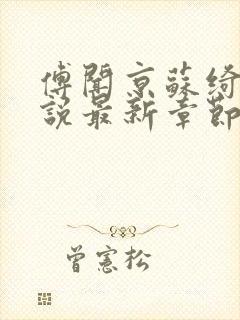 傅聞京蘇綺
說最新章節
曾憲松